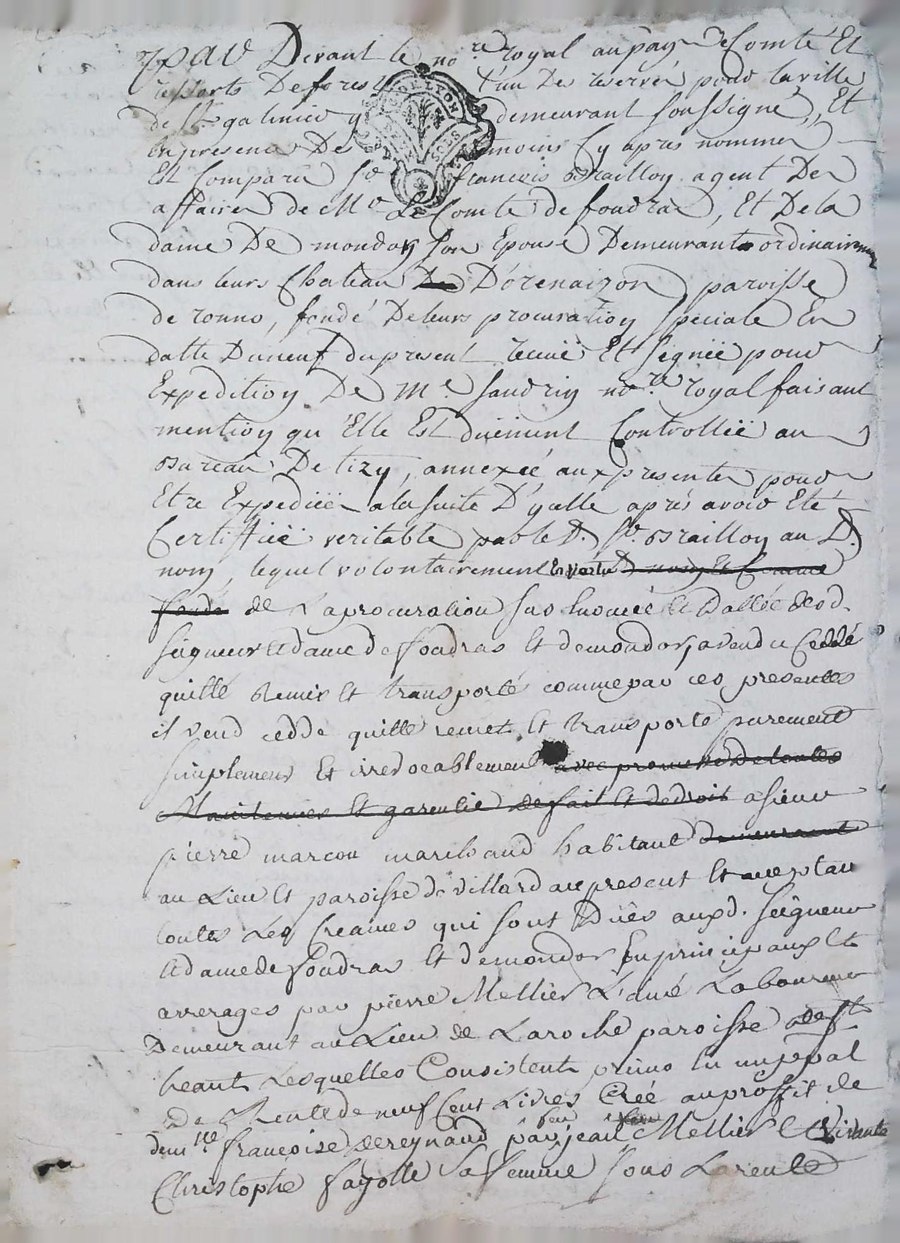 Par Devant le no.re royal au pays De Comté Et
ressorts De forest l'un Des reservés pour la ville
de St galmier y demeurant soussigné, Et
en presence Des temoins Cy apres nommés
Est Comparu Sr françois Brailloy agent Des
affaires de Mr Le Comte de foudras, Et De la
dame De mondor son Epouse Demeurants ordinairement
dans leurs Chateau De D'orenaizon paroisse
de ronno, fondé De leurs procuration speciale En
datte Du neuf du present recuie Et signée pour
Expedition De Me Sandrin no.re royal faisant
mention qu'Elle Est düement Controllée au
Bureau De tizy, annexée aux presentes pour
Etre Expediée a la suite D'ycelle après avoir Eté
Certiffiée veritable par le D. Sr. Brailloy au D.
nom, lequel volontairement En vertu
fondé de La procuration sus Enoncée Et dattée desd.
seigneur Et dame de foudras Et de mondor, a vendu Ceddé
quitté remis Et transporté comme par ces presentes
il vend cedde quitte remet Et transporte purement
simplement Et irrevocablement avec promesse De toutes
Maintenues Et garentie de fait Et de droit a sieur
pierre marcou marchand habitant demeurant
au Lieu Et paroisse de villard au present Et acceptau
toutes Les Creances qui sont Dües auxd. Seigneur
Et dame de foudras Et de mondor En principaux Et
arrerages par pierre Mellier L'ainé Laboureur
Demeurant au Lieu de La roche paroisse de St
heant Lesquelles Consistent primo En un p.pal
de Rente de neuf Cent Livres Créé au proffit de
demlle françoise dereynaud par feu jean Mellier Et
Christophe fayolle sa femme sous La rente